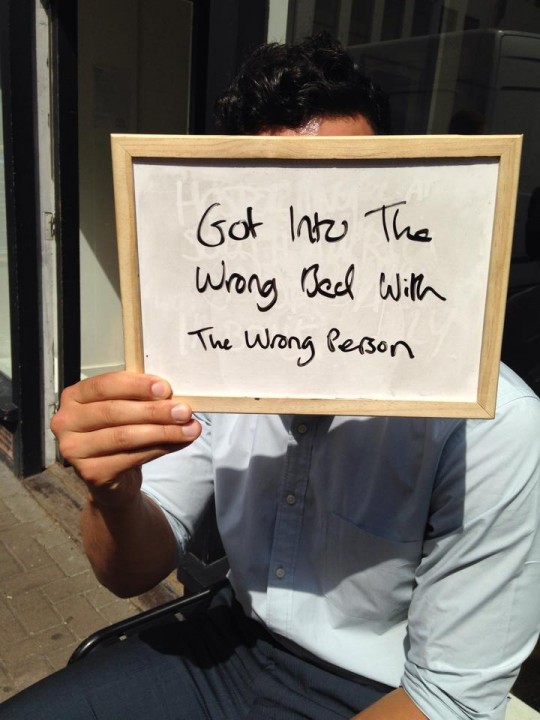 Got Into The
Wrong Bed With
The Wrong Person